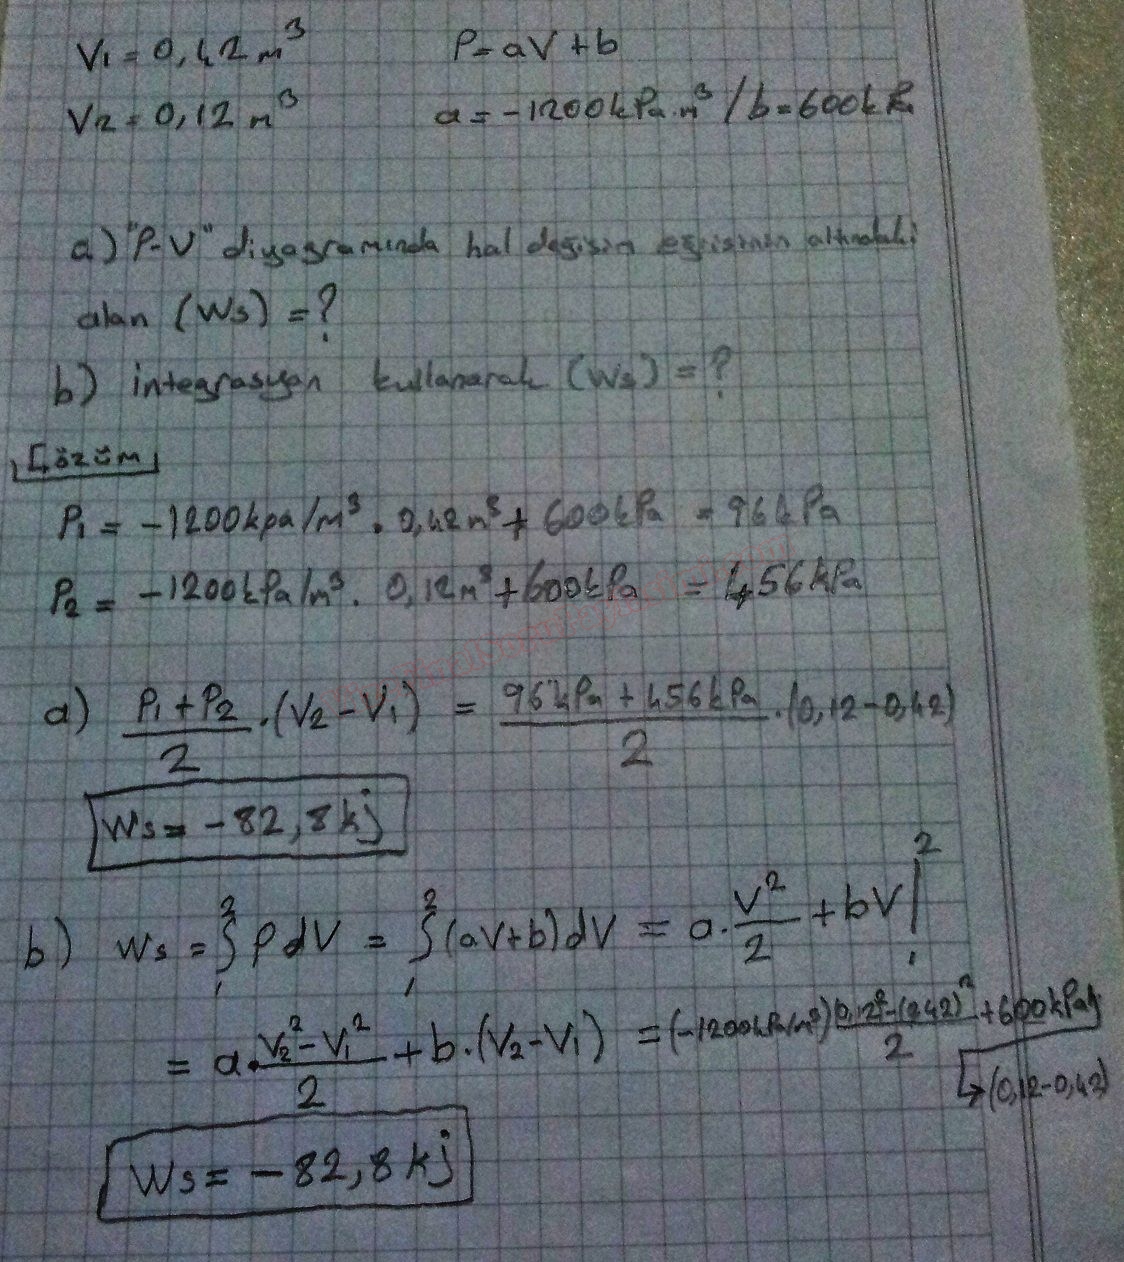 V1 = 0,42 m³ P = aV + b
V2 = 0,12 m³ a = -1200 kPa.m³ / b = 600 kPa
a) "P-V" diyagramında hal değişim eğrisinin altındaki
alan (Ws) = ?
b) integrasyon kullanarak (Ws) = ?
Çözüm
P1 = -1200 kpa/m³ . 0,42 m³ + 600 kPa = 96 kPa
P2 = -1200 kPa/m³ . 0,12 m³ + 600 kPa = 456 kPa
a) (P1 + P2)/2 . (V2 - V1) = (96 kPa + 456 kPa)/2 . (0,12 - 0,42)
Ws = -82,8 kj
b) Ws = ∫₁² P dV = ∫₁² (aV + b) dV = a . V²/2 + bV |₁²
= a . (V2² - V1²)/2 + b . (V2 - V1) = (-1200 kPa/m³) (0,12² - (0,42)²)/2 + 600 kPa
↳ (0,12 - 0,42)
Ws = -82,8 kj